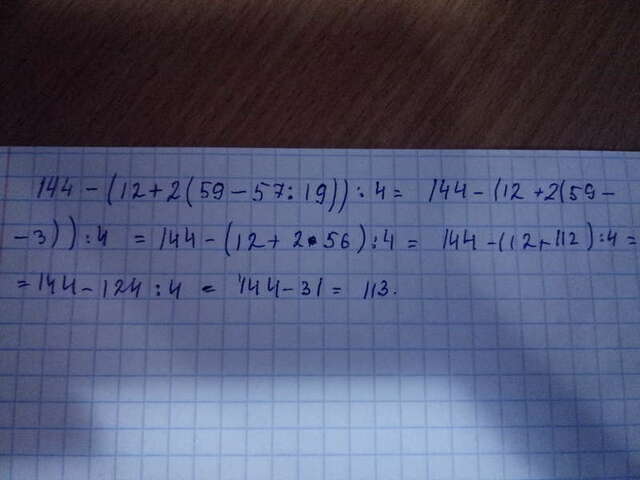 144-(12+2(59-57:19)):4= 144-(12+2(59-
-3)):4 = 144-(12+2•56):4= 144-(12+112):4=
=144-124:4 = 144-31= 113.